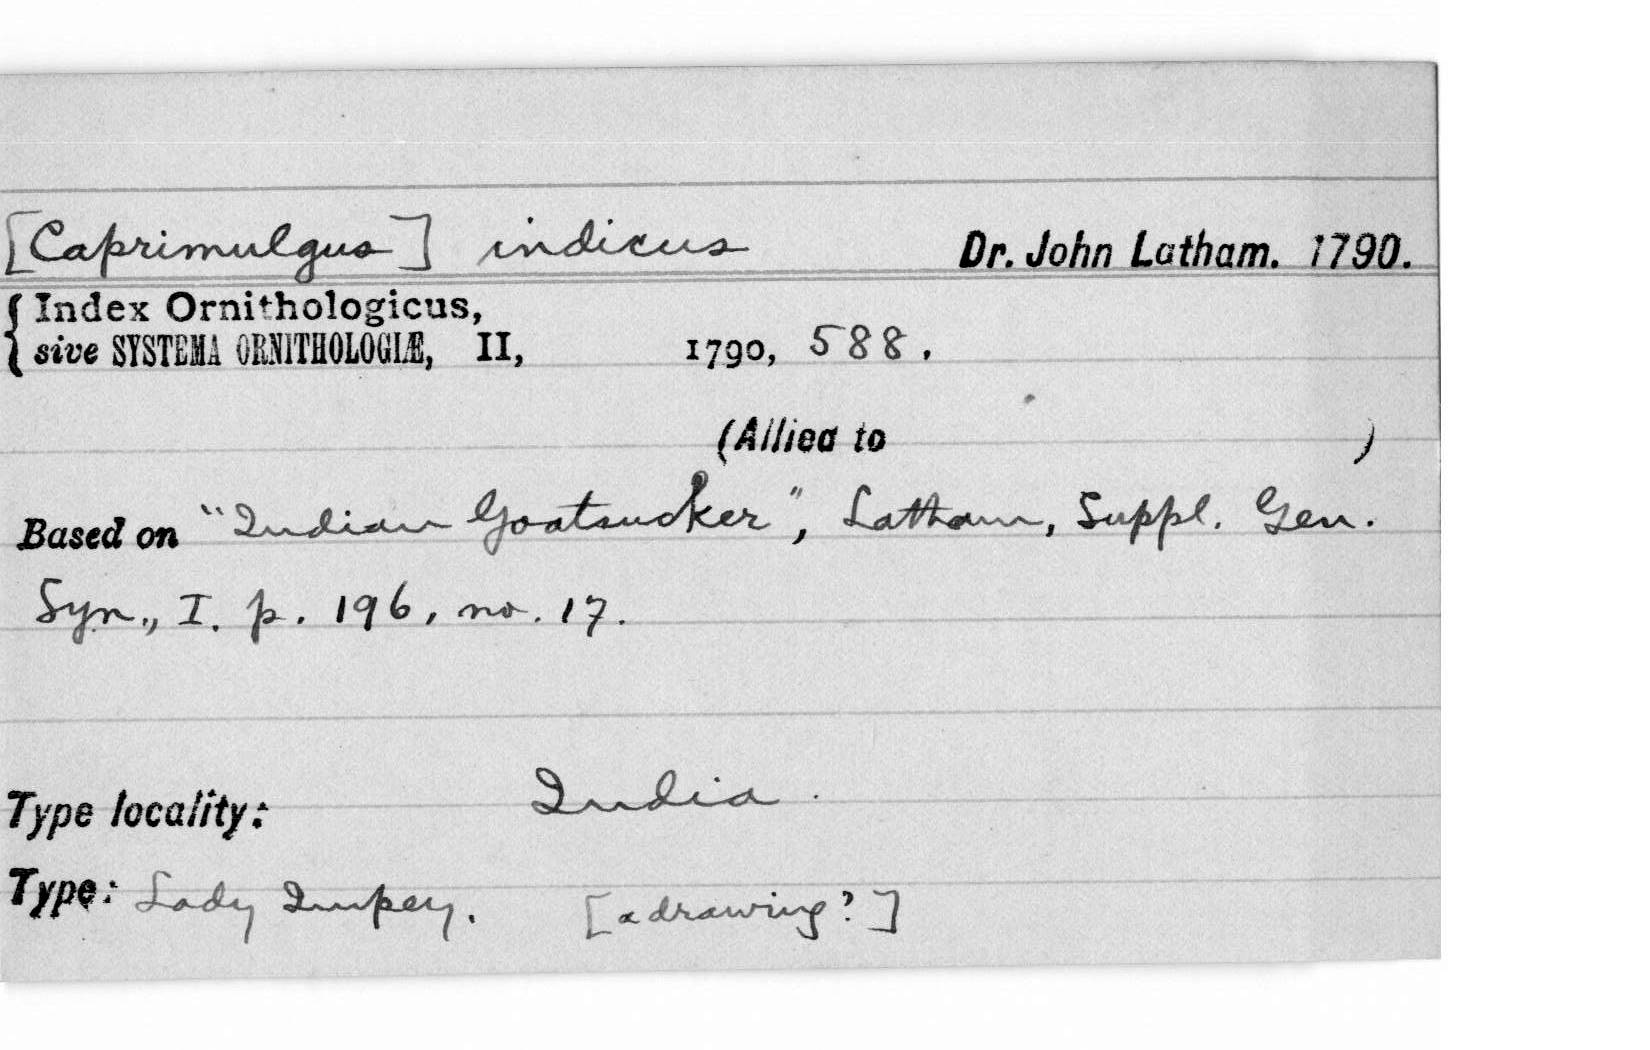 [Caprimulgus] indicus Dr. John Latham. 1790.
{ Index Ornithologicus,
sive SYSTEMA ORNITHOLOGIÆ, II, 1790, 588.
(Allied to )
Based on "Indian Goatsucker", Latham, Suppl. Gen.
Syn., I. p. 196, no. 17.
Type locality: India.
Type: Lady Impey. [a drawing?]